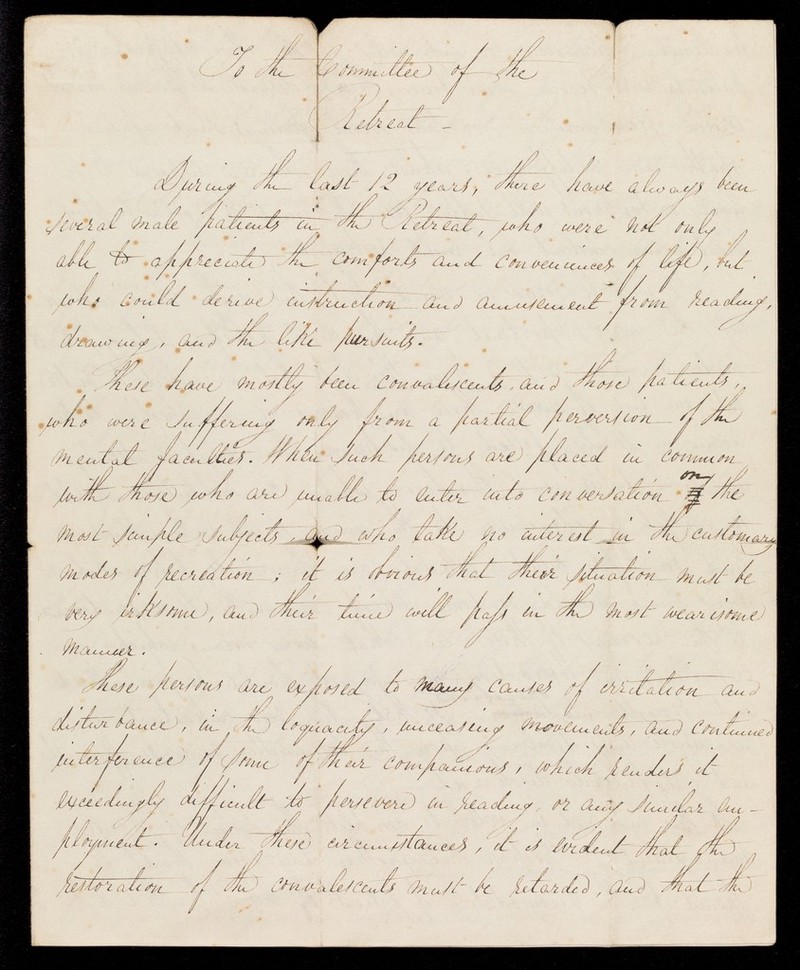 To the Committee of the
Retreat -
During the last 12 years, there have always been
several male patients in the Retreat, who were not only
able to appreciate the comforts and conveniences of life, but
who could derive instruction and amusement from reading,
drawing, and the like pursuits.
These have mostly been convalescents, and those patients,
who were suffering only from a partial perversion of the
mental faculties. When such persons are placed in common
with those who are unable to enter into conversation on the
most simple subjects, and who take no interest in the customary
modes of recreation; it is obvious that their situation must be
very irksome, and their time will pass in the most wearisome
manner.
These persons are exposed to many causes of irritation and
disturbance, in the loquacity, unceasing movements, and continued
interference of some of their companions, which renders it
exceedingly difficult to persevere in reading or any similar em-
ployment. Under these circumstances, it is evident that the
restoration of the convalescents must be retarded, and that the